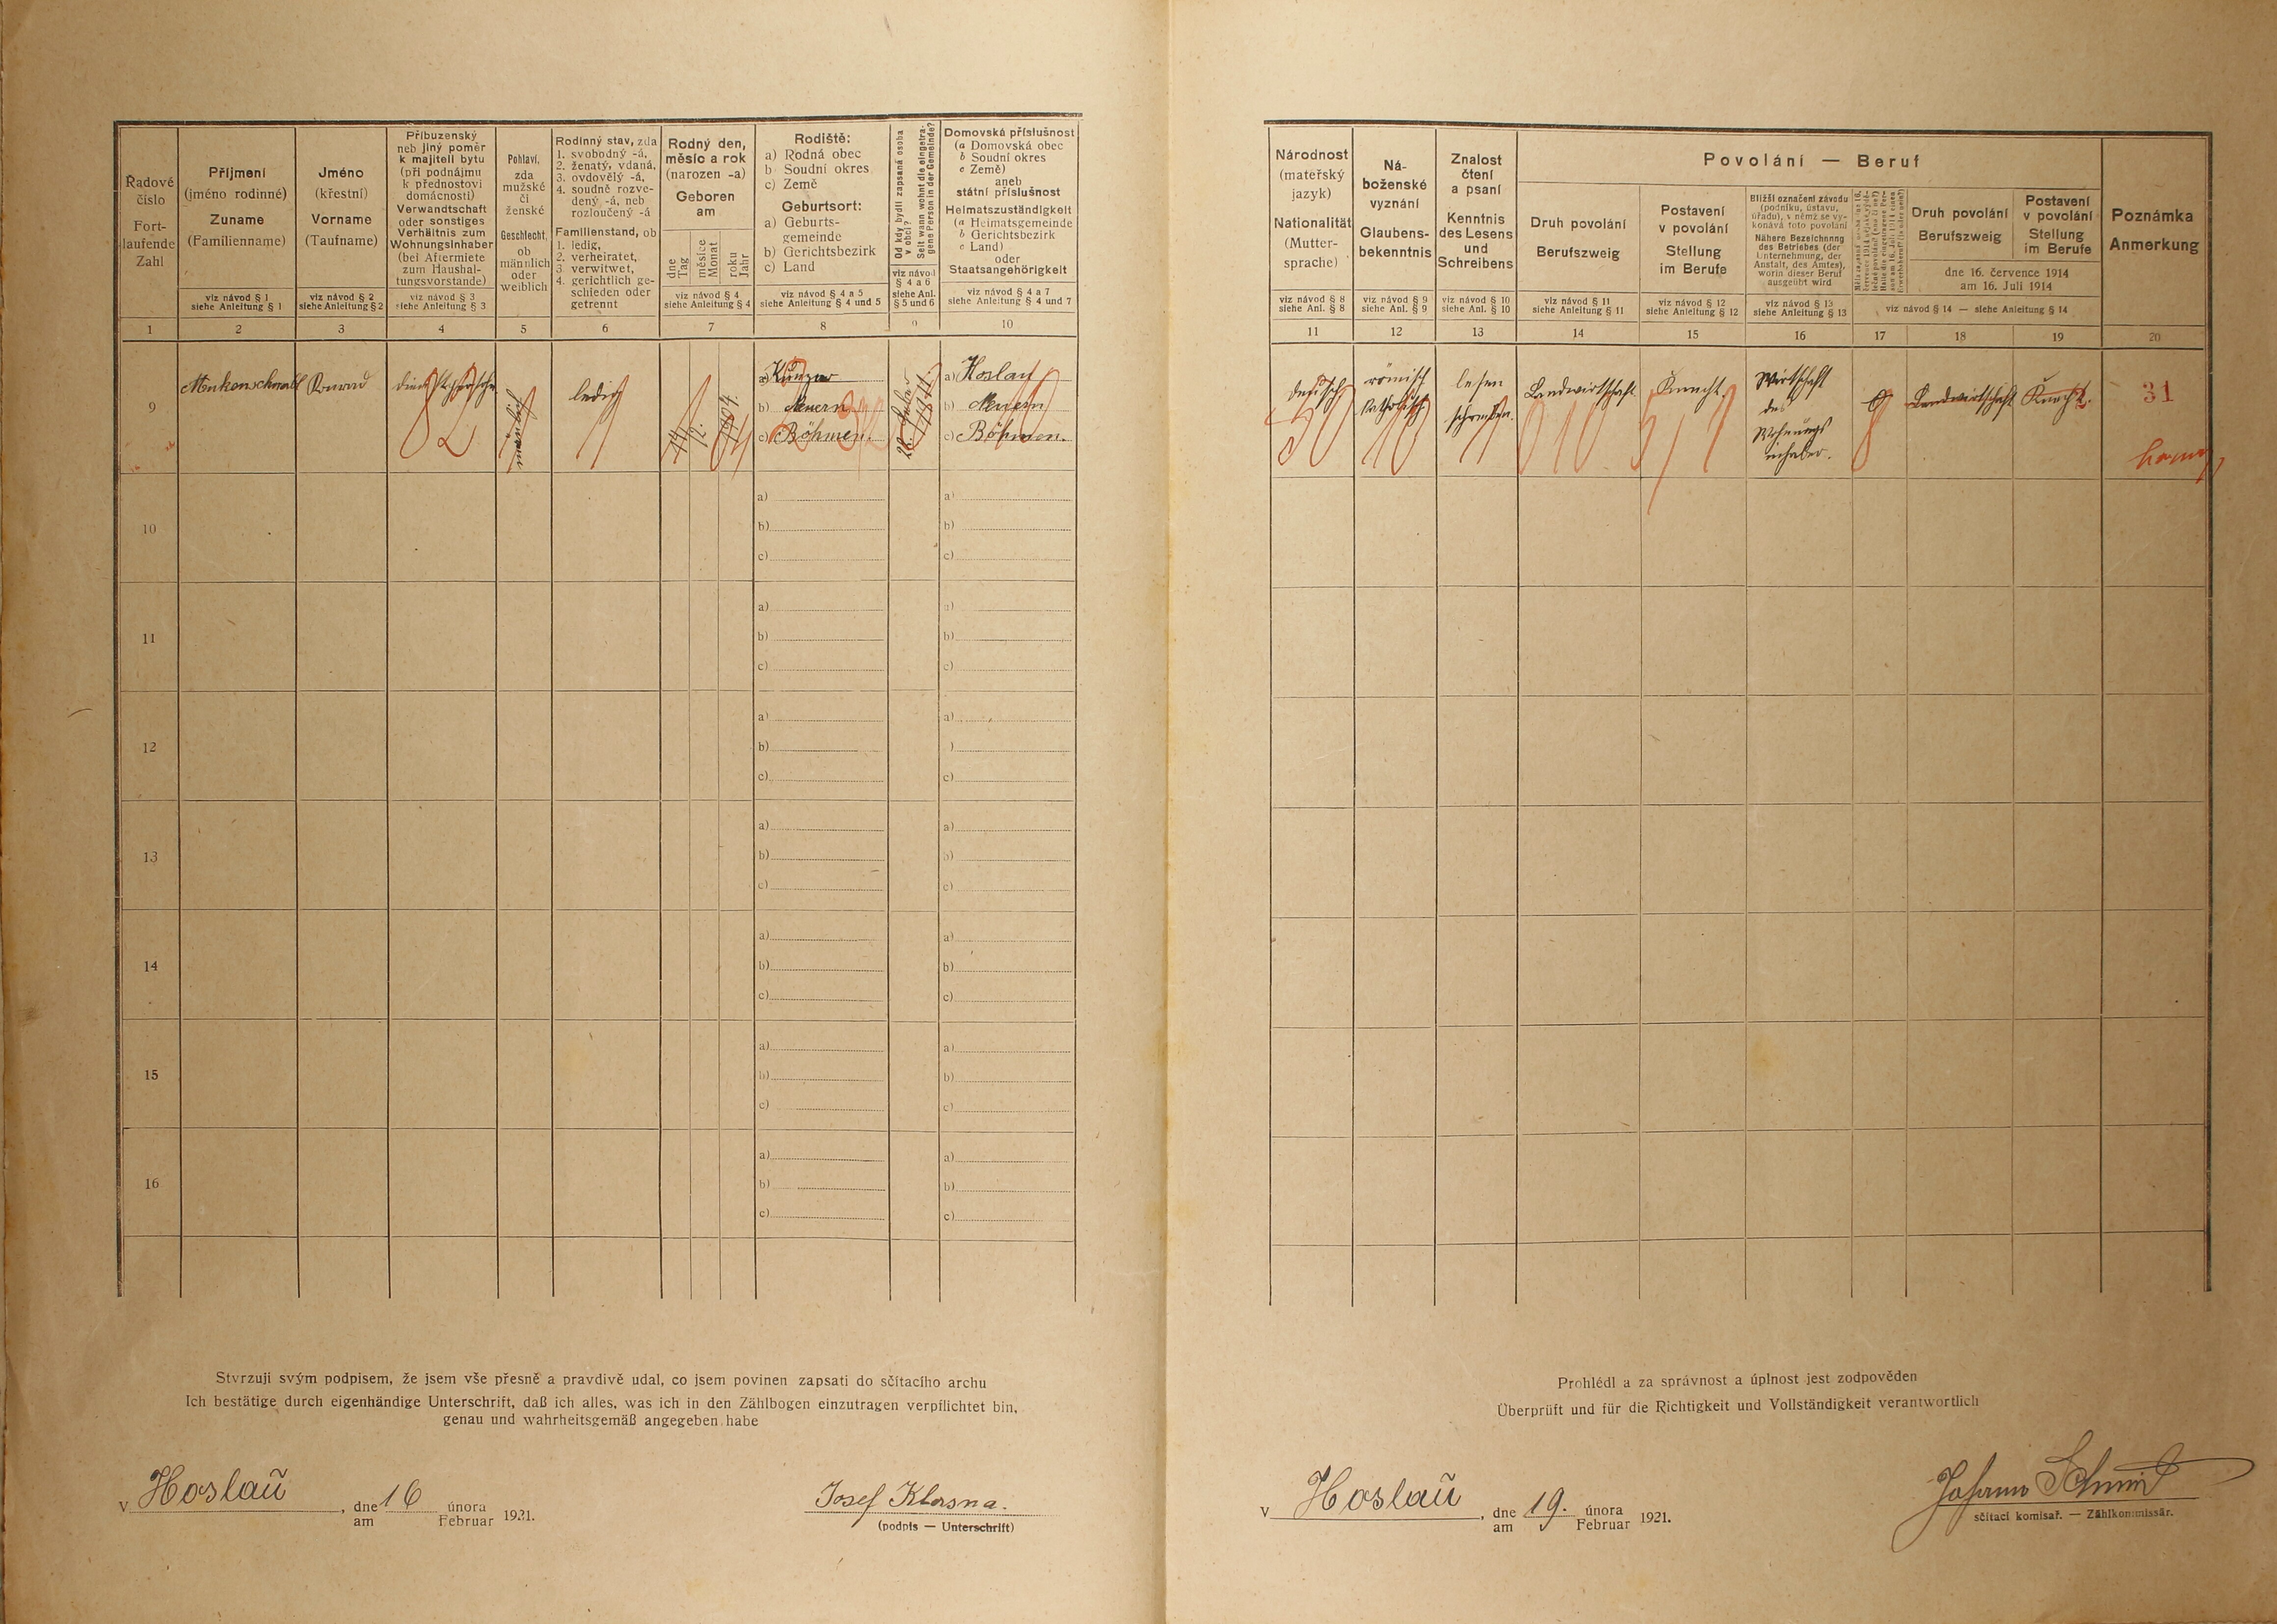 Řadové
číslo
Fort-
laufende
Zahl
1
Příjmení
(jméno rodinné)
Zuname
(Familienname)
viz návod § 1
siehe Anleitung § 1
2
Jméno
(křestní)
Vorname
(Taufname)
viz návod § 2
siehe Anleitung § 2
3
Příbuzenský
neb jiný poměr
k majiteli bytu
(při podnájmu
k přednostovi
domácnosti)
Verwandtschaft
oder sonstiges
Verhältnis zum
Wohnungsinhaber
(bei Aftermiete
zum Haushal-
tungsvorstande)
viz návod § 3
siehe Anleitung § 3
4
Pohlaví,
zda
mužské
či
ženské
Geschlecht,
ob
männlich
oder
weiblich
5
Rodinný stav, zda
1. svobodný -á,
2. ženatý, vdaná,
3. ovdovělý -á,
4. soudně rozve-
dený -á, neb
rozloučený -á
Familienstand, ob
1. ledig,
2. verheiratet,
3 verwitwet,
4. gerichtlich ge-
schieden oder
getrennt
6
Rodný den,
měsíc a rok
(narozen -a)
Geboren
am
dne
Tag
měsíce
Monat
roku
Jahr
viz návod § 4
siehe Anleitung § 4
7
Rodiště:
a) Rodná obec
b Soudní okres
c) Země
Geburtsort:
a) Geburts-
gemeinde
b) Gerichtsbezirk
c) Land
viz návod § 4 a 5
siehe Anleitung § 4 und 5
8
Od kdy bydlí zapsaná osoba
v obci?
Seit wann wohnt die eingetra-
gene Person in der Gemeinde?
viz návod
§ 4 a 6
siehe Anl.
§ 5 und 6
9
Domovská příslušnost
(a Domovská obec
b Soudní okres
c Země)
aneb
státní příslušnost
Heimatszuständigkeit
(a Heimatsgemeinde
b Gerichtsbezirk
c Land)
oder
Staatsangehörigkeit
viz návod § 4 a 7
siehe Anleitung § 4 und 7
10
Národnost
(mateřský
jazyk)
Nationalität
(Mutter-
sprache)
viz návod § 8
siehe Anl. § 8
11
Ná-
boženské
vyznání
Glaubens-
bekenntnis
viz návod § 9
siehe Anl. § 9
12
Znalost
čtení
a psaní
Kenntnis
des Lesens
und
Schreibens
viz návod § 10
siehe Anl. § 10
13
Povolání — Beruf
Druh povolání
Berufszweig
viz návod § 11
siehe Anleitung § 11
14
Postavení
v povolání
Stellung
im Berufe
viz návod § 12
siehe Anleitung § 12
15
Bližší označení závodu
(podniku, ústavu,
úřadu), v němž se vy-
konává toto povolání
Nähere Bezeichnung
des Betriebes (der
Unternehmung, der
Anstalt, des Amtes),
worin dieser Beruf
ausgeübt wird
viz návod § 13
siehe Anleitung § 13
16
Druh povolání
Berufszweig
Postavení
v povolání
Stellung
im Berufe
dne 16. července 1914
am 16. Juli 1914
viz návod § 14 — siehe Anleitung § 14
17
18
19
Poznámka
Anmerkung
20
9
männlich
ledig
14
a)
b) Neuern
c) Böhmen.
a) Hoslau
b) Neuern
c) Böhmen.
deutsch
römisch
katholisch
lesen
schreiben.
Landwirtschaft
Knecht.
Wirtschaft
des
Wohnungs
inhaber.
Landwirtschaft
Knecht.
31
10
a)
b)
c)
a)
b)
c)
11
a)
b)
c)
a)
b)
c)
12
a)
b)
c)
a)
)
c)
13
a)
b)
c)
a)
b)
c)
14
a)
b)
c)
a)
b)
c)
15
a)
b)
c)
a)
b)
c)
16
a)
b)
c)
a)
b)
c)
Stvrzuji svým podpisem, že jsem vše přesně a pravdivě udal, co jsem povinen zapsati do sčítacího archu
Ich bestätige durch eigenhändige Unterschrift, daß ich alles, was ich in den Zählbogen einzutragen verpflichtet bin,
genau und wahrheitsgemäß angegeben habe
v Hoslaũ, dne 16 února
am Februar 1921.
Josef Klasna.
(podpis — Unterschrift)
Prohlédl a za správnost a úplnost jest zodpověden
Überprüft und für die Richtigkeit und Vollständigkeit verantwortlich
v Hoslaũ, dne 19. února
am Februar 1921.
Johann
sčítací komisař. — Zählkommissär.